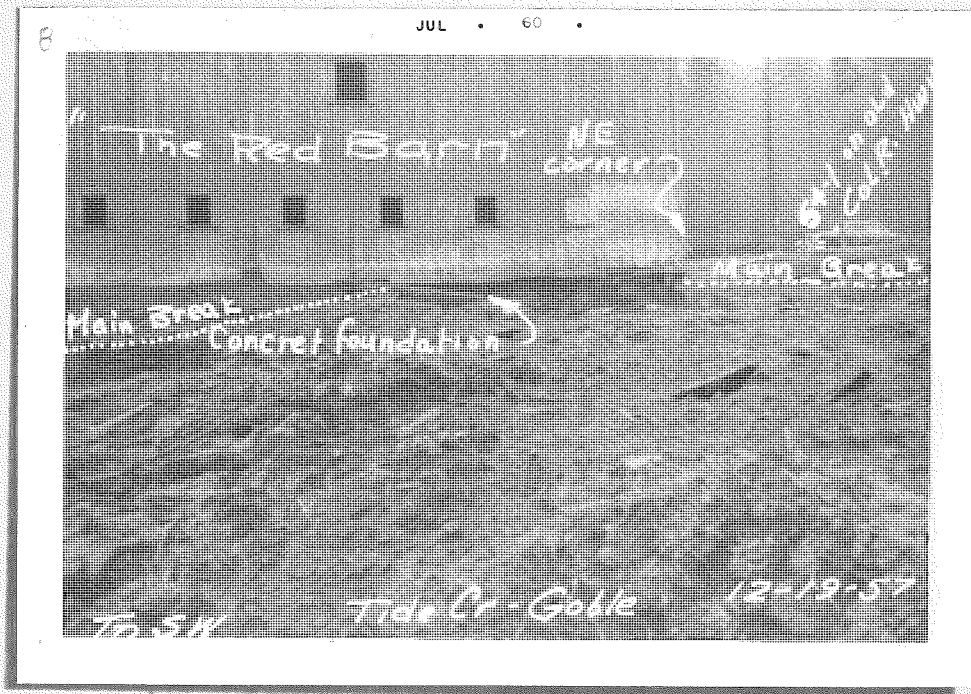 JUL • 60 •
8
"The Red Barn"
NE
corner
Main Break
Main Break
Concret foundation
To SW
Tide Cr - Goble
12-19-57